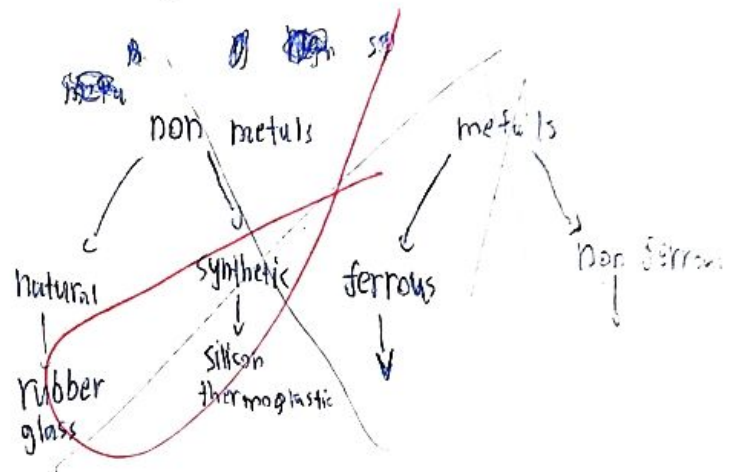 non metals
metals
natural
synthetic
ferrous
non ferrous
rubber
glass
silicon
thermoplastic